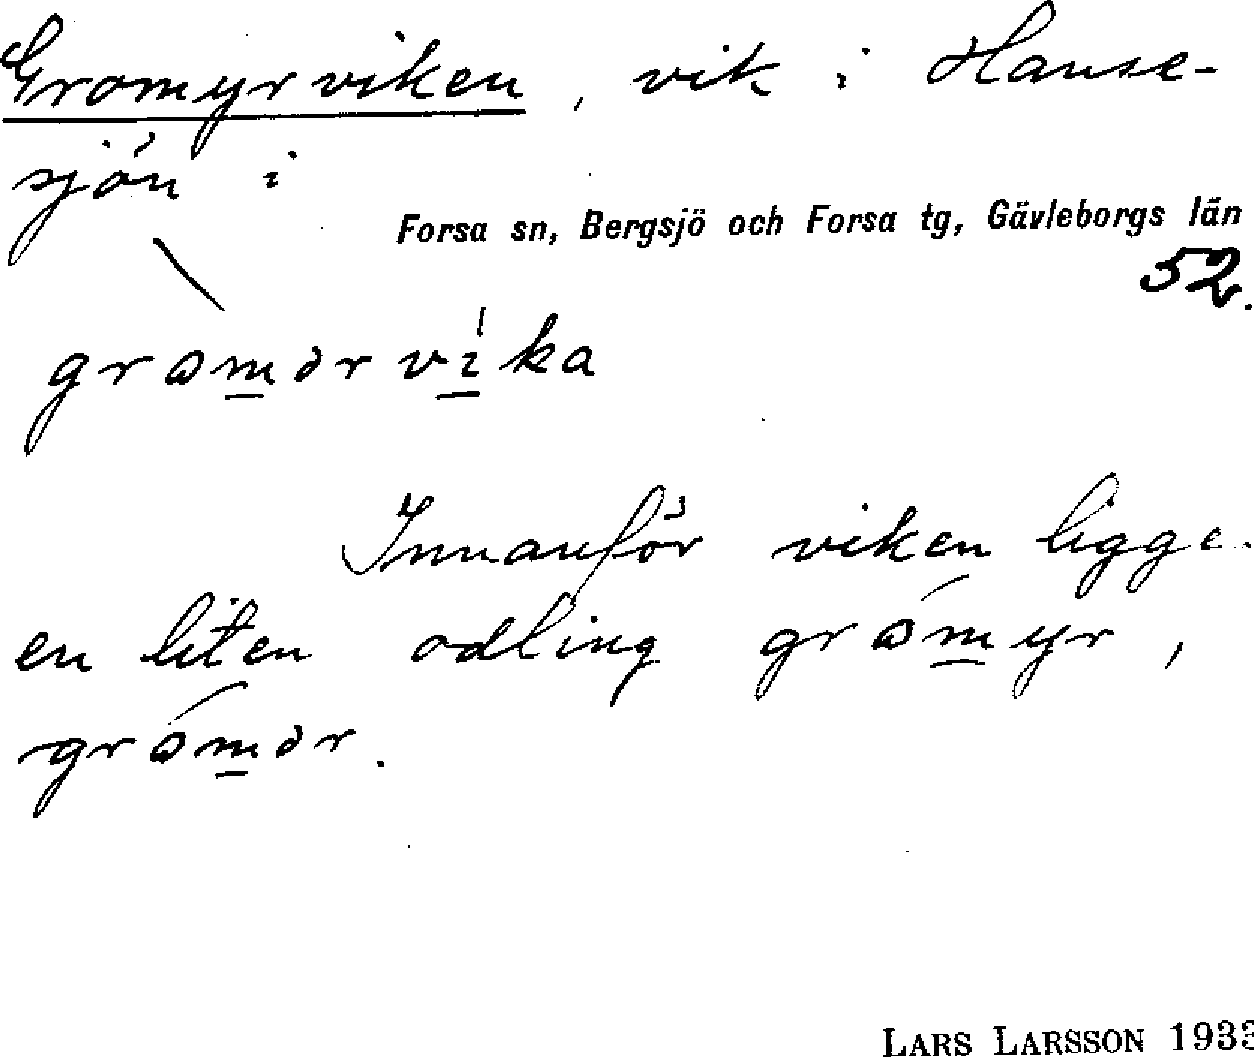 Gromyrviken, vik i Hanse-
sjön i
Forsa sn, Bergsjö och Forsa tg, Gävleborgs län
52.
gromərvi̱ka
Innanför viken ligge
en liten odling gromyr,
gromər.
LARS LARSSON 1933